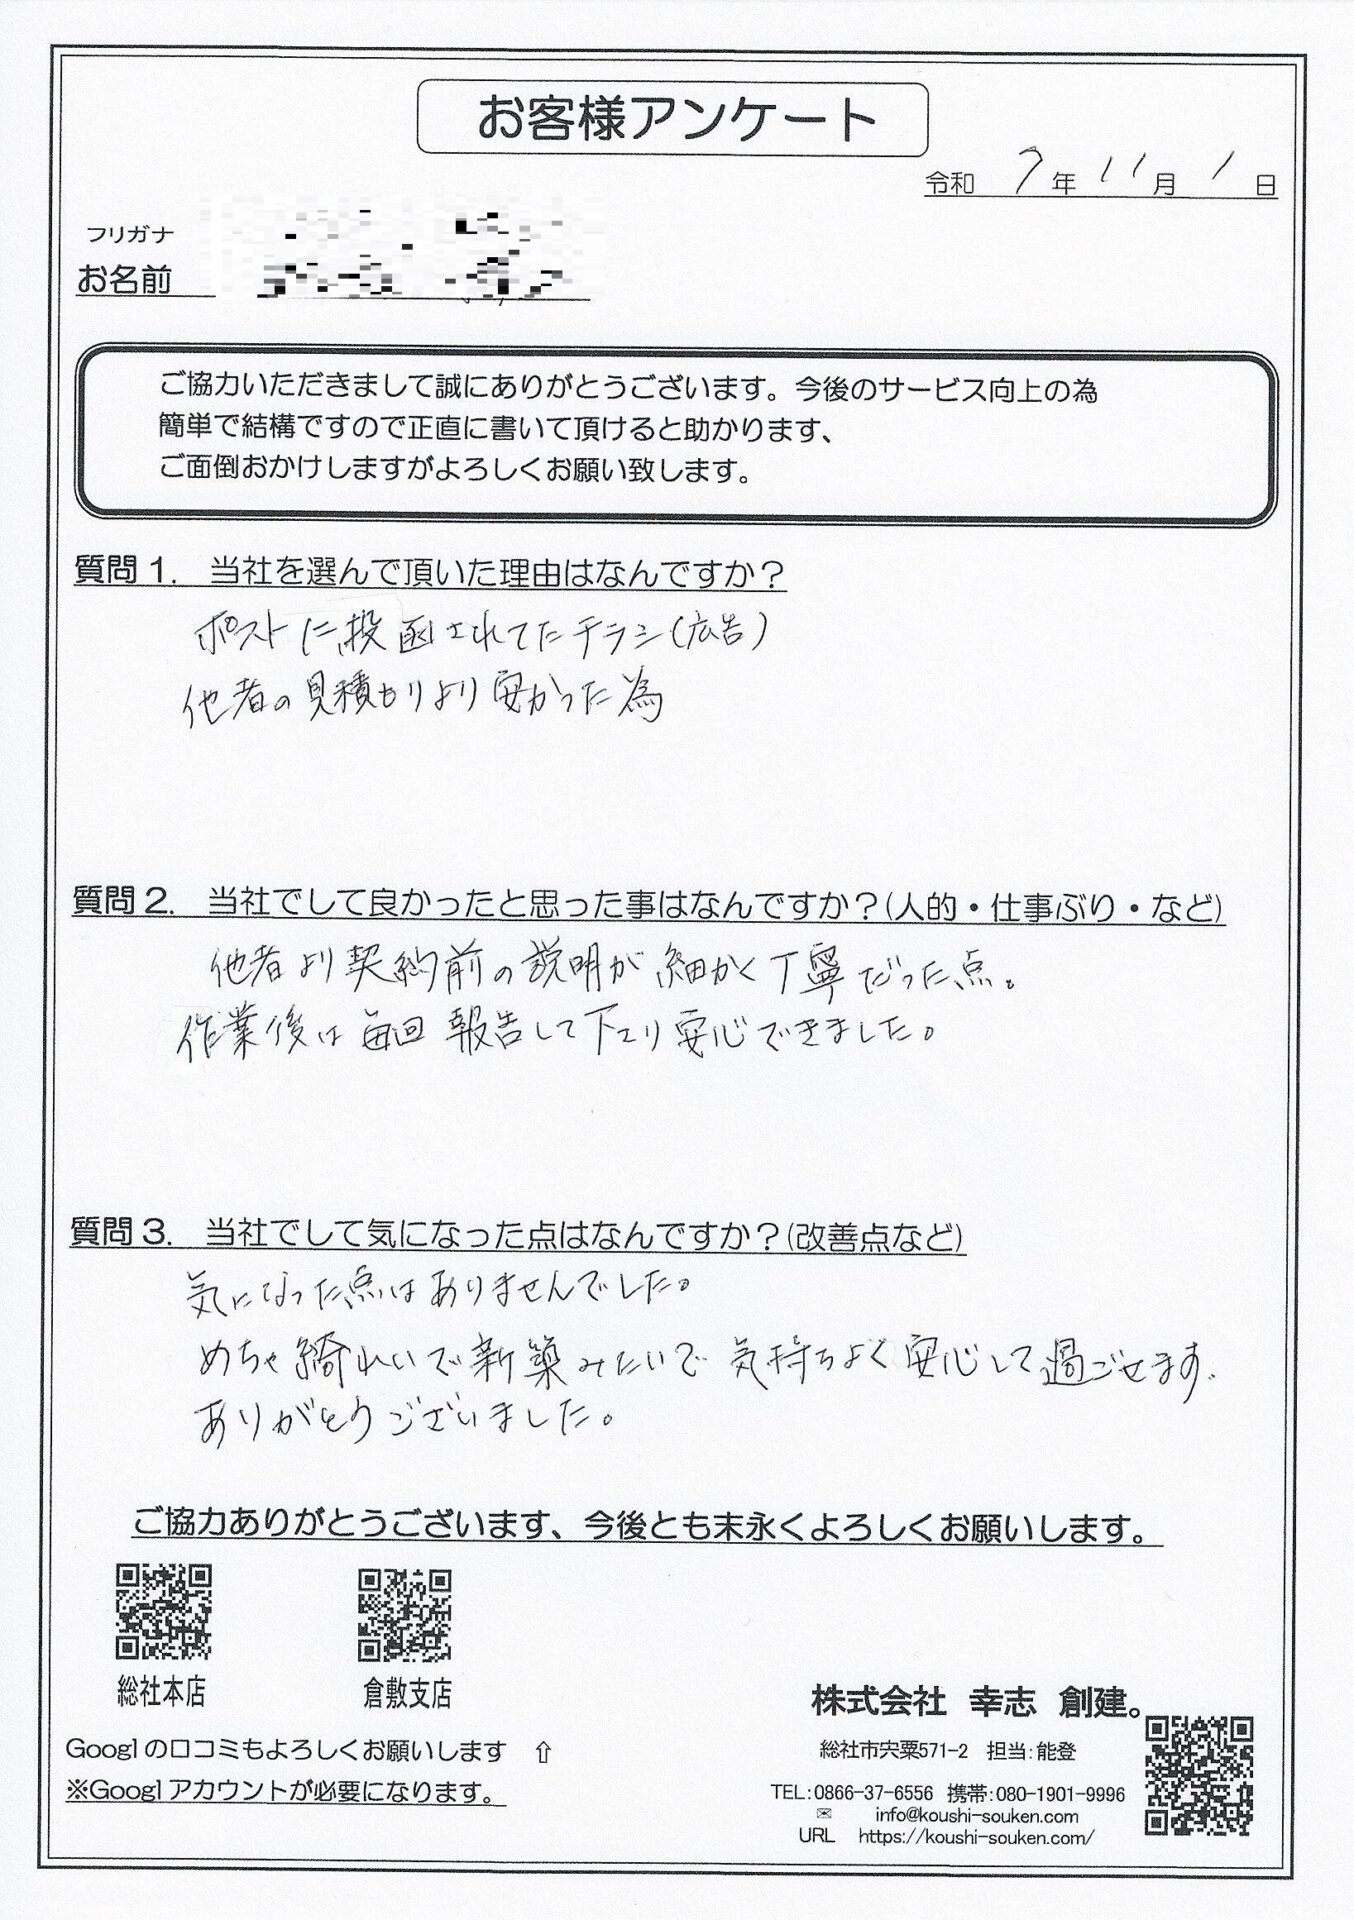 お客様アンケート
令和 7年 11月 1日
フリガナ
お名前
ご協力いただきまして誠にありがとうございます。今後のサービス向上の為
簡単で結構ですので正直に書いて頂けると助かります、
ご面倒おかけしますがよろしくお願い致します。
質問1. 当社を選んで頂いた理由はなんですか？
ポストに投函されてたチラシ(広告)
他者の見積もりより安かった為
質問2. 当社でして良かったと思った事はなんですか？(人的・仕事ぶり・など)
他者より契約前の説明が細かく丁寧だった点。
作業後は毎回報告して下さり安心できました。
質問3. 当社でして気になった点はなんですか？(改善点など)
気になった点はありませんでした。
めちゃ綺れいで新築みたいで気持ちよく安心して過ごせます。
ありがとうございました。
ご協力ありがとうございます、今後とも末永くよろしくお願いします。
総社本店 倉敷支店
Googlの口コミもよろしくお願いします ⇧
※Googlアカウントが必要になります。
株式会社 幸志 創建。
総社市宍粟571-2 担当:能登
TEL:0866-37-6556 携帯:080-1901-9996
✉ info@koushi-souken.com
URL https://koushi-souken.com/